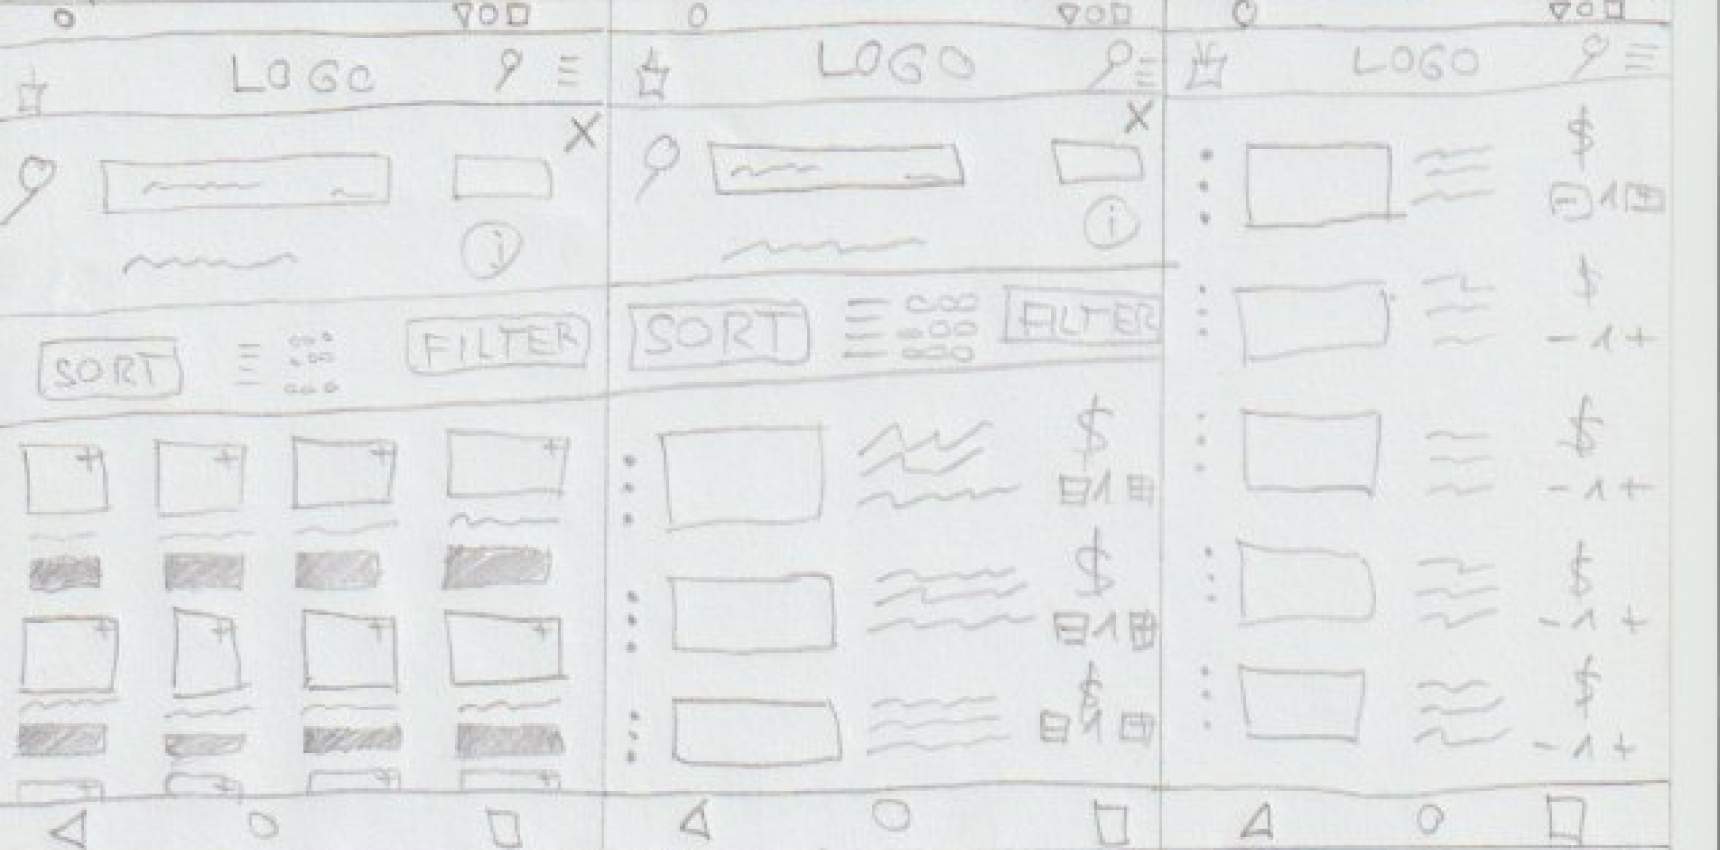 LOGO
SORT
FILTER
LOGO
SORT
FILTER
$
1
$
1
$
1
LOGO
$
1
$
1
$
1
$
1
$
1